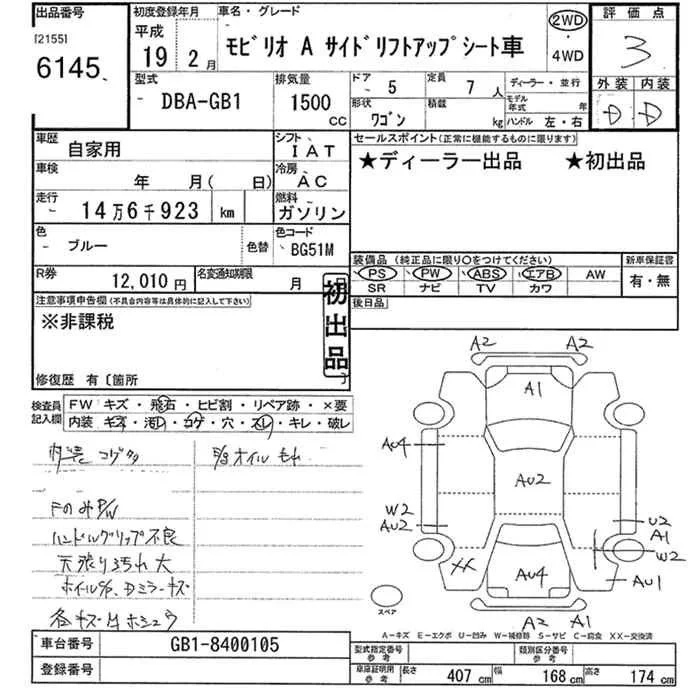 出品番号 初度登録年月 車名・グレード 2WD 評価点
[2155] 平成
6145 19年 2月 モビリオ A サイドリフトアップシート車 ・ 4WD 3
型式 排気量 ドア 5 定員 7人 ディーラー・並行 外装 内装
DBA-GB1 1500 CC 形状 ワゴン 積載 kg モデル年式 年 ハンドル 左・右 D D
車歴 自家用 シフト IAT セールスポイント(正常に機能するものに限ります)
車検 年 月( 日) 冷房 AC ★ディーラー出品 ★初出品
走行 14万6千923 km 燃料 ガソリン
色 ブルー 色替 色コード BG51M
装備品(純正品に限り○をつけてください) 新車保証書
PS PW ABS エアB AW 有・無
SR ナビ TV カワ
R券 12,010円 名変通知期限 月
後日品
注意事項申告欄(不具合内容等は具体的に記入して下さい) 初出品
※非課税
修復歴 有〔箇所 〕
検査員記入欄 FW キズ・飛石・ヒビ割・リペア跡・×要
内装 キズ・汚レ・コゲ・穴・スレ・キレ・破レ
内装 コゲ
Fのみ P/W
ハンドルグリップ不良
天張り汚れ大
A2 A2
A1
AU4
AU2
W2
AU2
U2
A1
W2
XX AU4 AU1
A2 A1
スペア
A-キズ E-エクボ U-凹み W-補修跡 S-サビ C-腐食 XX-交換済
車台番号 GB1-8400105
登録番号
型式指定番号 参考 類別区分番号 参考
車庫証明用 参考 長さ 407 cm 幅 168 cm 高さ 174 cm